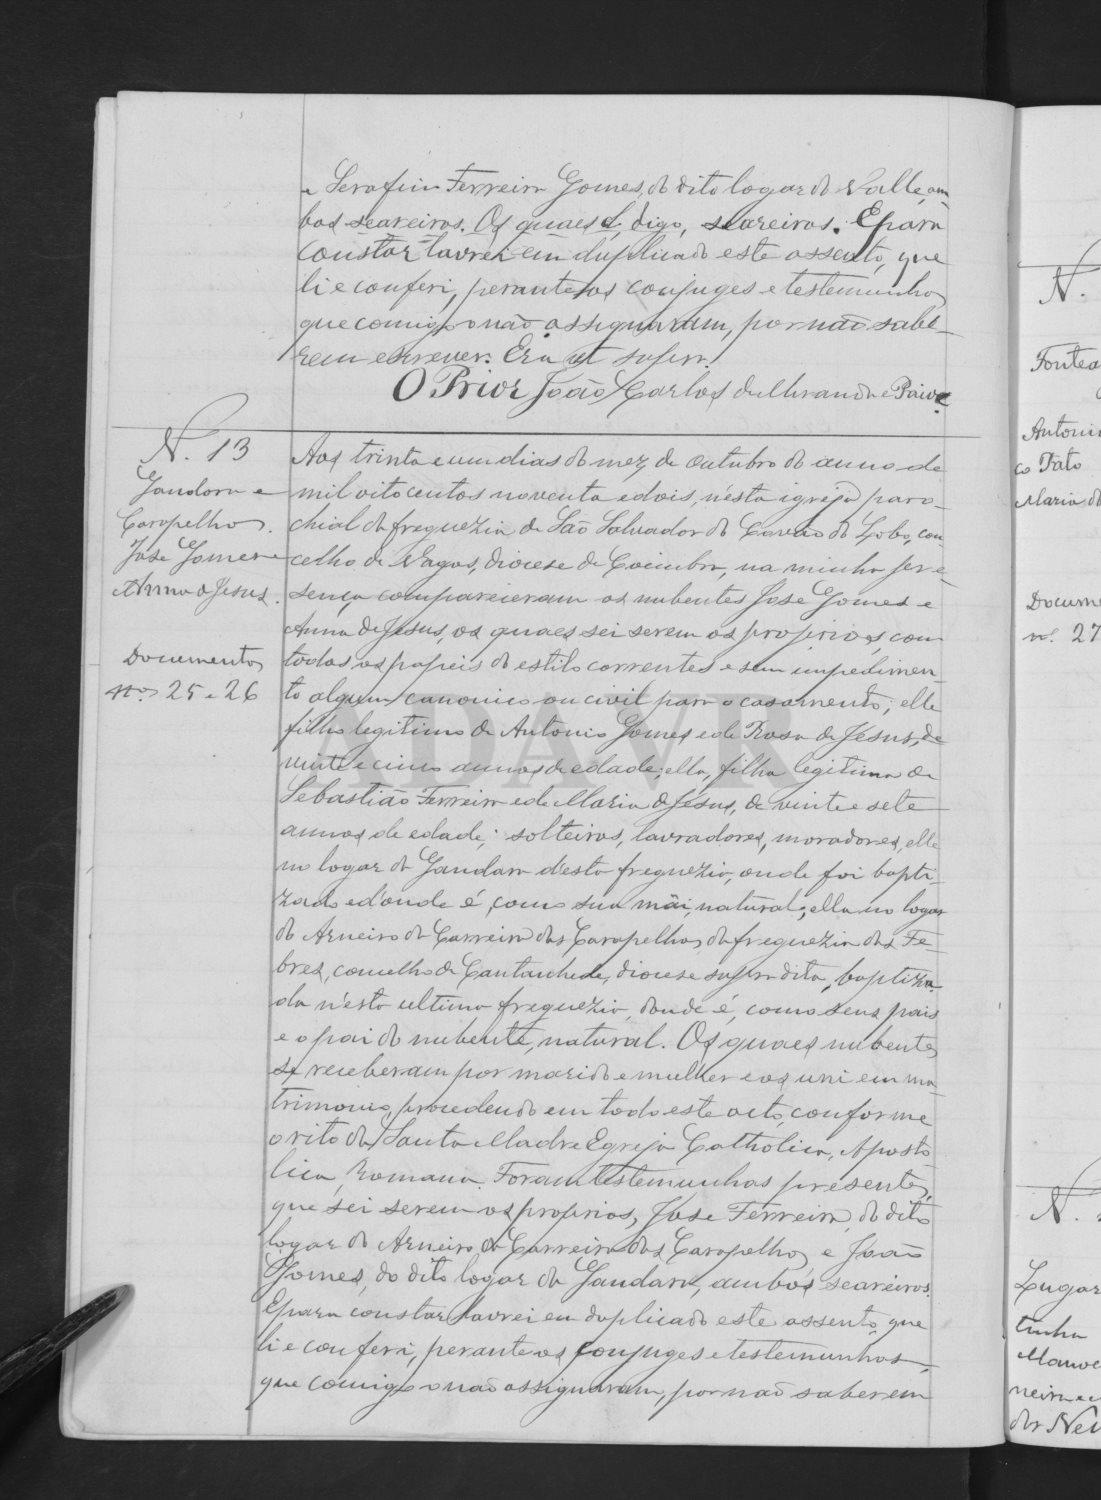 e Serafim Ferreira Gomes, do dito logar do Valle, am-
bos seareiros. Os quaes d, digo, seareiros. E para
constar lavrei em duplicado este assento, que
li e conferi, perante os conjuges e testemunhas
que comigo o não assignaram, por não sabe-
rem escrever. Era ut supra.
O Prior João Carlos de Miranda e Paiva.
N. 13
Gandara e
Carapelhos.
José Gomes e
Anna de Jesus.
Documentos
nos 25 e 26
Aos trinta e um dias do mez de outubro do anno de
mil oito centos noventa e dois, n'esta igreja paro-
chial da freguezia de São Salvador do Covão do Lobo, con-
celho de Vagos, diocese de Coimbra, na minha pre-
sença compareceram os nubentes José Gomes e
Anna de Jesus, os quaes sei serem os proprios, com
todos os papeis do estilo correntes e sem impedimen-
to algum canonico ou civil para o casamento; elle
filho legitimo de Antonio Gomes e de Rosa de Jesus, de
vinte e cinco annos de edade; ella, filha legitima de
Sebastião Ferreira e de Maria de Jesus, de vinte e sete
annos de edade; solteiros, lavradores, moradores, elle
no logar da Gandara d'esta freguezia, onde foi bapti-
zado e d'onde é, como sua mãi, natural; ella no logar
do Arneiro da Carreira dos Carapelhos da freguezia das Fe-
bres, concelho de Cantanhede, diocese supra dita, baptiza-
da n'esta ultima freguezia, donde é, como seus pais
e o pai do nubente, natural. Os quaes nubentes
se receberam por marido e mulher e os uni em ma-
trimonio, procedendo em todo este acto, conforme
o rito da Santa Madre Egreja Catholica, Aposto
lica, Romana. Foram testemunhas presentes,
que sei serem os proprios, José Ferreira, do dito
logar do Arneiro da Carreira dos Carapelhos e João
Gomes, do dito logar da Gandara, ambos seareiros.
E para constar lavrei em duplicado este assento, que
li e conferi, perante os conjuges e testemunhas,
que comigo o não assignaram, por não saberem
ADAVR
N.
Fontea
Antonio
co Tato
Maria d
Docume
n. 27
N.
Lugar
tinha
Manoe
neira e
da Nev